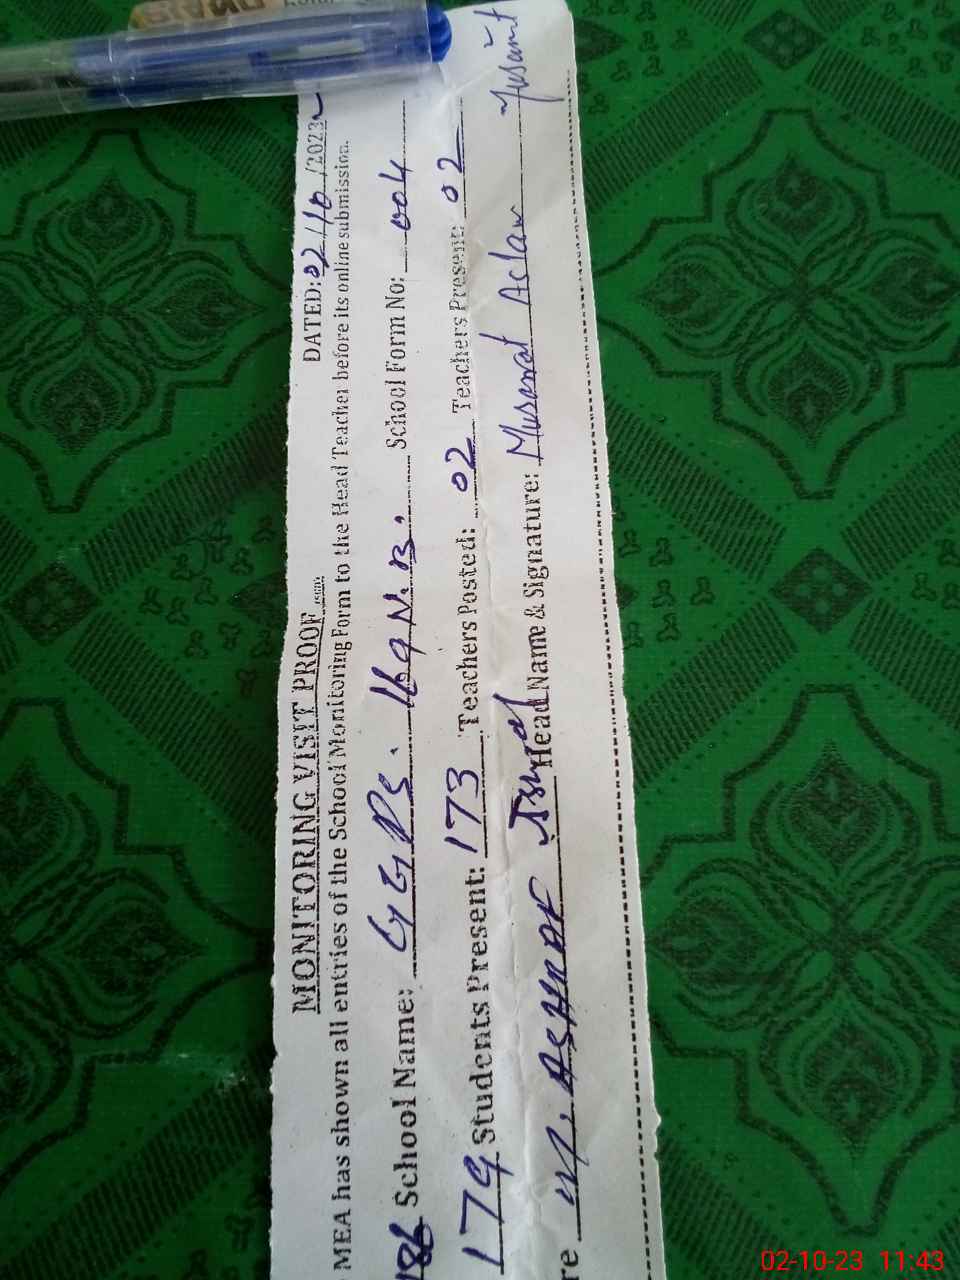 MONITORING VISIT PROOF
DATED: 02/10/2023
MEA has shown all entries of the School Monitoring Form to the Head Teacher before its online submission.
186 School Name: GGPS. 169 N.B. School Form No: 004
179 Students Present: 173 Teachers Posted: 02 Teachers Present: 02
re M. ASHRAF Head Name & Signature: Musarat Aslam Musarat
02-10-23 11:43